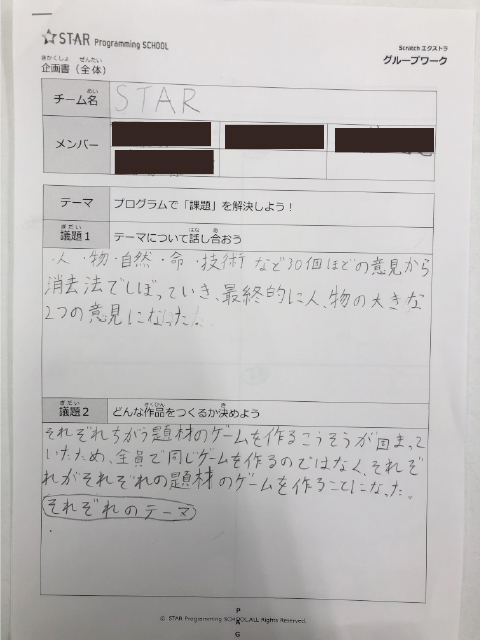 STAR Programming SCHOOL
Scratch エクストラ
グループワーク
きかくしょ ぜんたい
企画書（全体）
めい
チーム名
STAR
メンバー
テーマ
プログラムで「課題」を解決しよう！
ぎだい
議題1
はな あ
テーマについて話し合おう
人・物・自然・命・技術 など30個ほどの意見から
消去法でしぼっていき、最終的に人、物の大きな
2つの意見になった。
ぎだい
議題2
さくひん き
どんな作品をつくるか決めよう
それぞれちがう題材のゲームを作るこうそうが固まって
いたため、全員で同じゲームを作るのではなく、それぞ
れがそれぞれの題材のゲームを作ることになった。
それぞれのテーマ
P
A
G
© STAR Programming SCHOOL.ALL Rights Reserved.